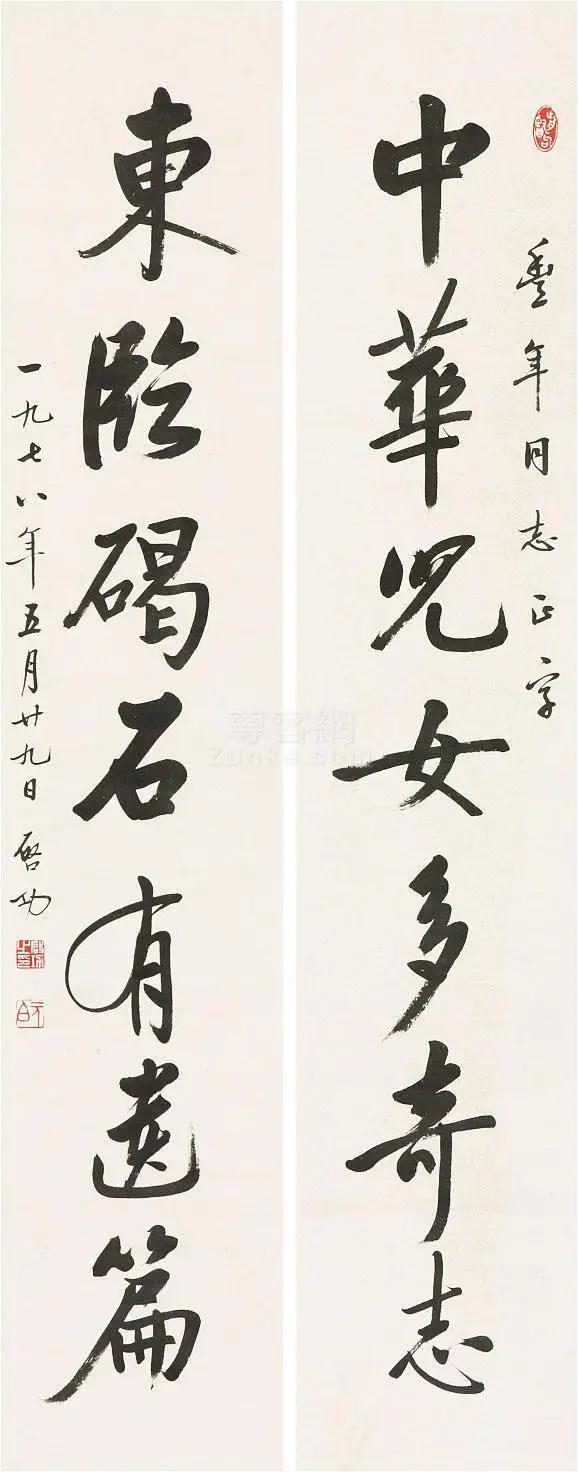 豐年同志正字
中華兒女多奇志
東臨碣石有遺篇
一九七八年五月廿九日 啓功
尊客網
Zunke.com